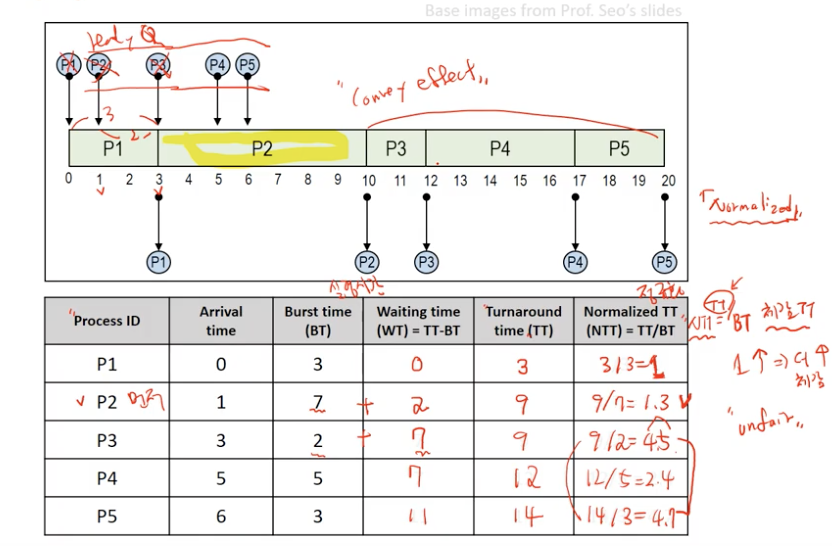 Base images from Prof. Seo's slides
Ready Q
P1 P2 P3 P4 P5
"Convoy effect"
3
2
P1 P2 P3 P4 P5
0 1 2 3 4 5 6 7 8 9 10 11 12 13 14 15 16 17 18 19 20
P1 P2 P3 P4 P5
"Normalized"
실행시간
Process ID Arrival time Burst time (BT) Waiting time (WT) = TT-BT Turnaround time (TT) Normalized TT (NTT) = TT/BT
NTT = TT/BT 체감 TT
P1 0 3 0 3 3/3=1
1↑ => 더↑
체감
P2 먼저 1 7 + 2 9 9/7=1.3
"unfair"
P3 3 2 + 7 9 9/2=4.5
P4 5 5 7 12 12/5=2.4
P5 6 3 11 14 14/3=4.7